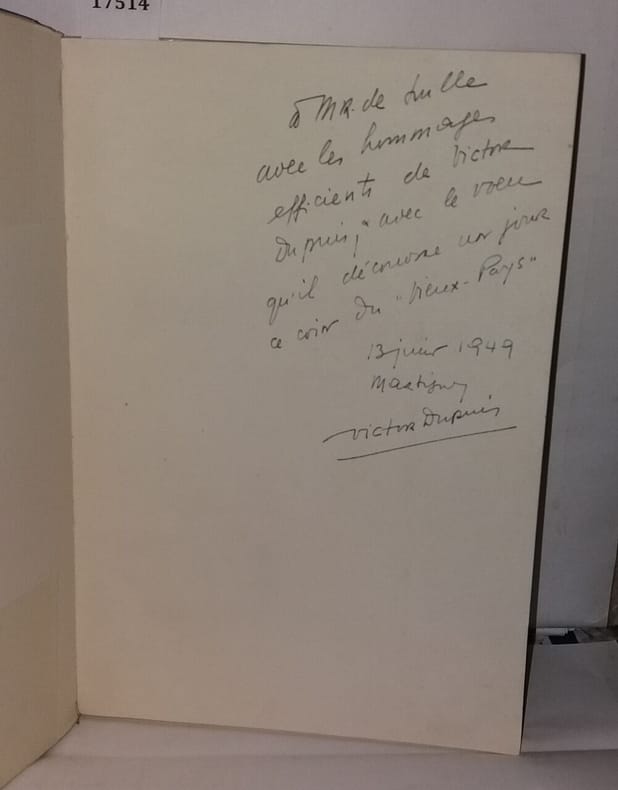 17514
à MR. de Lulle
avec les hommages
efficients de Victor
Dupuis, avec le voeu
qu'il découvre un jour
ce coin du "Vieux-Pays"
13 juin 1949
Martigny
Victor Dupuis